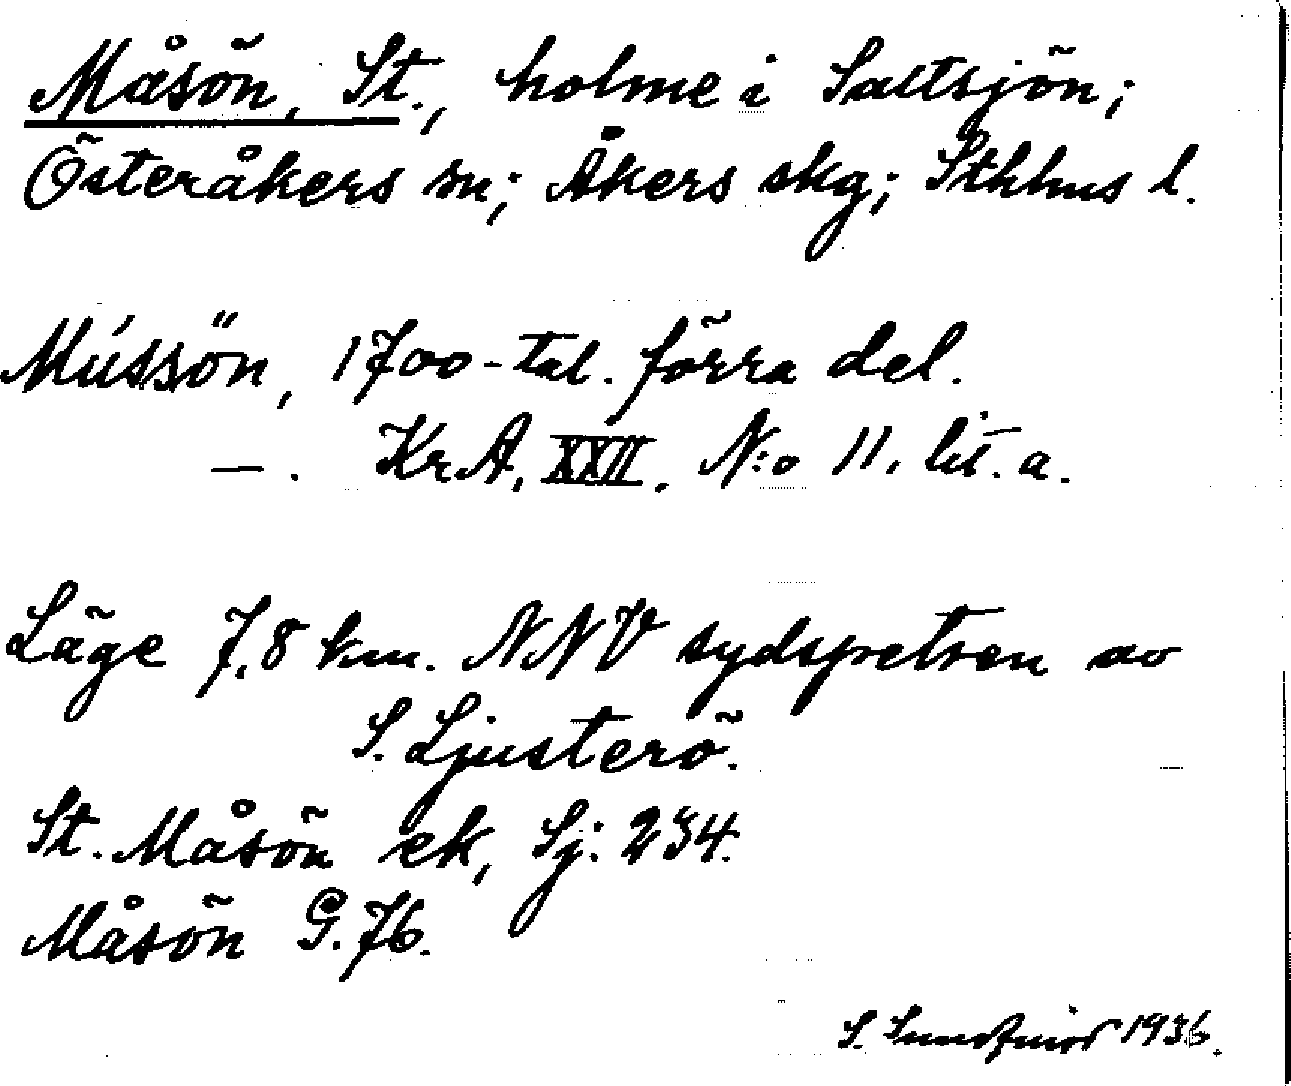 Måsön, St., holme i Saltsjön;
Österåkers sn; Åkers skg; Sthlms l.
Mússön, 1700-tal. förra del.
—. KrA, XXII. N:o 11. lit. a.
Läge 7,8 km. NNV sydspetsen av
S. Ljusterö.
St. Måsön ek, Sj: 234.
Måsön G. 76.
S. 1936.